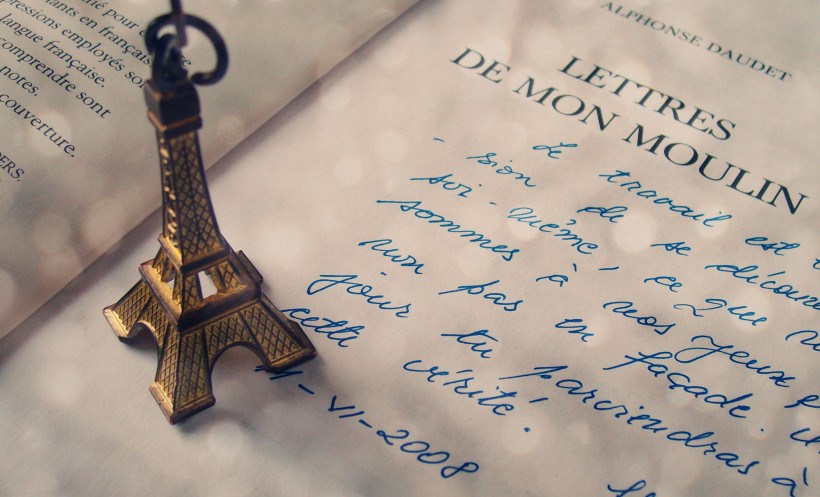 pour
en français
employés
langue française.
comprendre sont
notes.
couverture.
ALPHONSE DAUDET
LETTRES
DE MON MOULIN
Le travail est
sion de se
soi-même, ce que
sommes à nos yeux
non pas en façade.
jour tu parviendras à
cette vérité.
-VI-2008